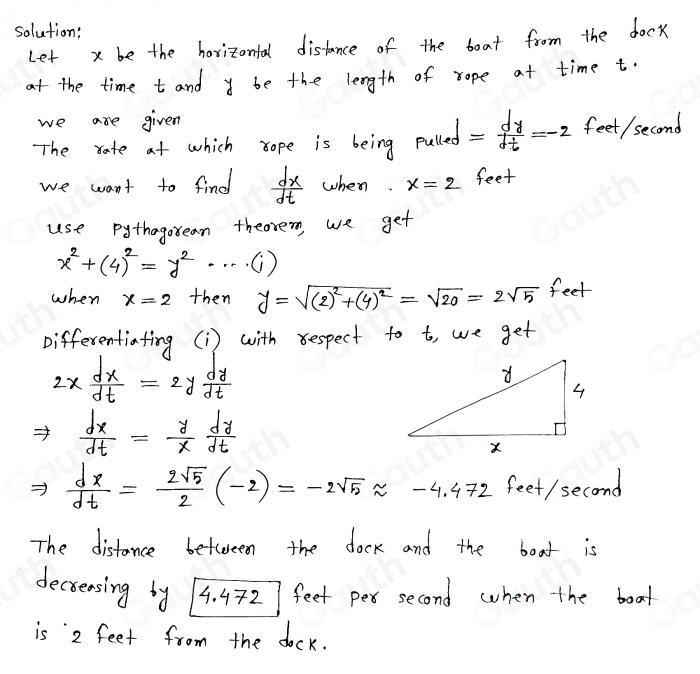 Solution:
Let x be the horizontal distance of the boat from the dock
at the time t and y be the length of rope at time t.
we are given
The rate at which rope is being pulled = dy/dt = -2 feet/second
we want to find dx/dt when . x = 2 feet
use pythagorean theorem, we get
x² + (4)² = y² ..... (i)
when x = 2 then y = √((2)² + (4)²) = √20 = 2√5 feet
Differentiating (i) with respect to t, we get
2x dx/dt = 2y dy/dt
⇒ dx/dt = y/x dy/dt
⇒ dx/dt = 2√5/2 (-2) = -2√5 ≈ -4.472 feet/second
y
4
x
The distance between the dock and the boat is
decreasing by 4.472 feet per second when the boat
is 2 feet from the dock.
Gauth